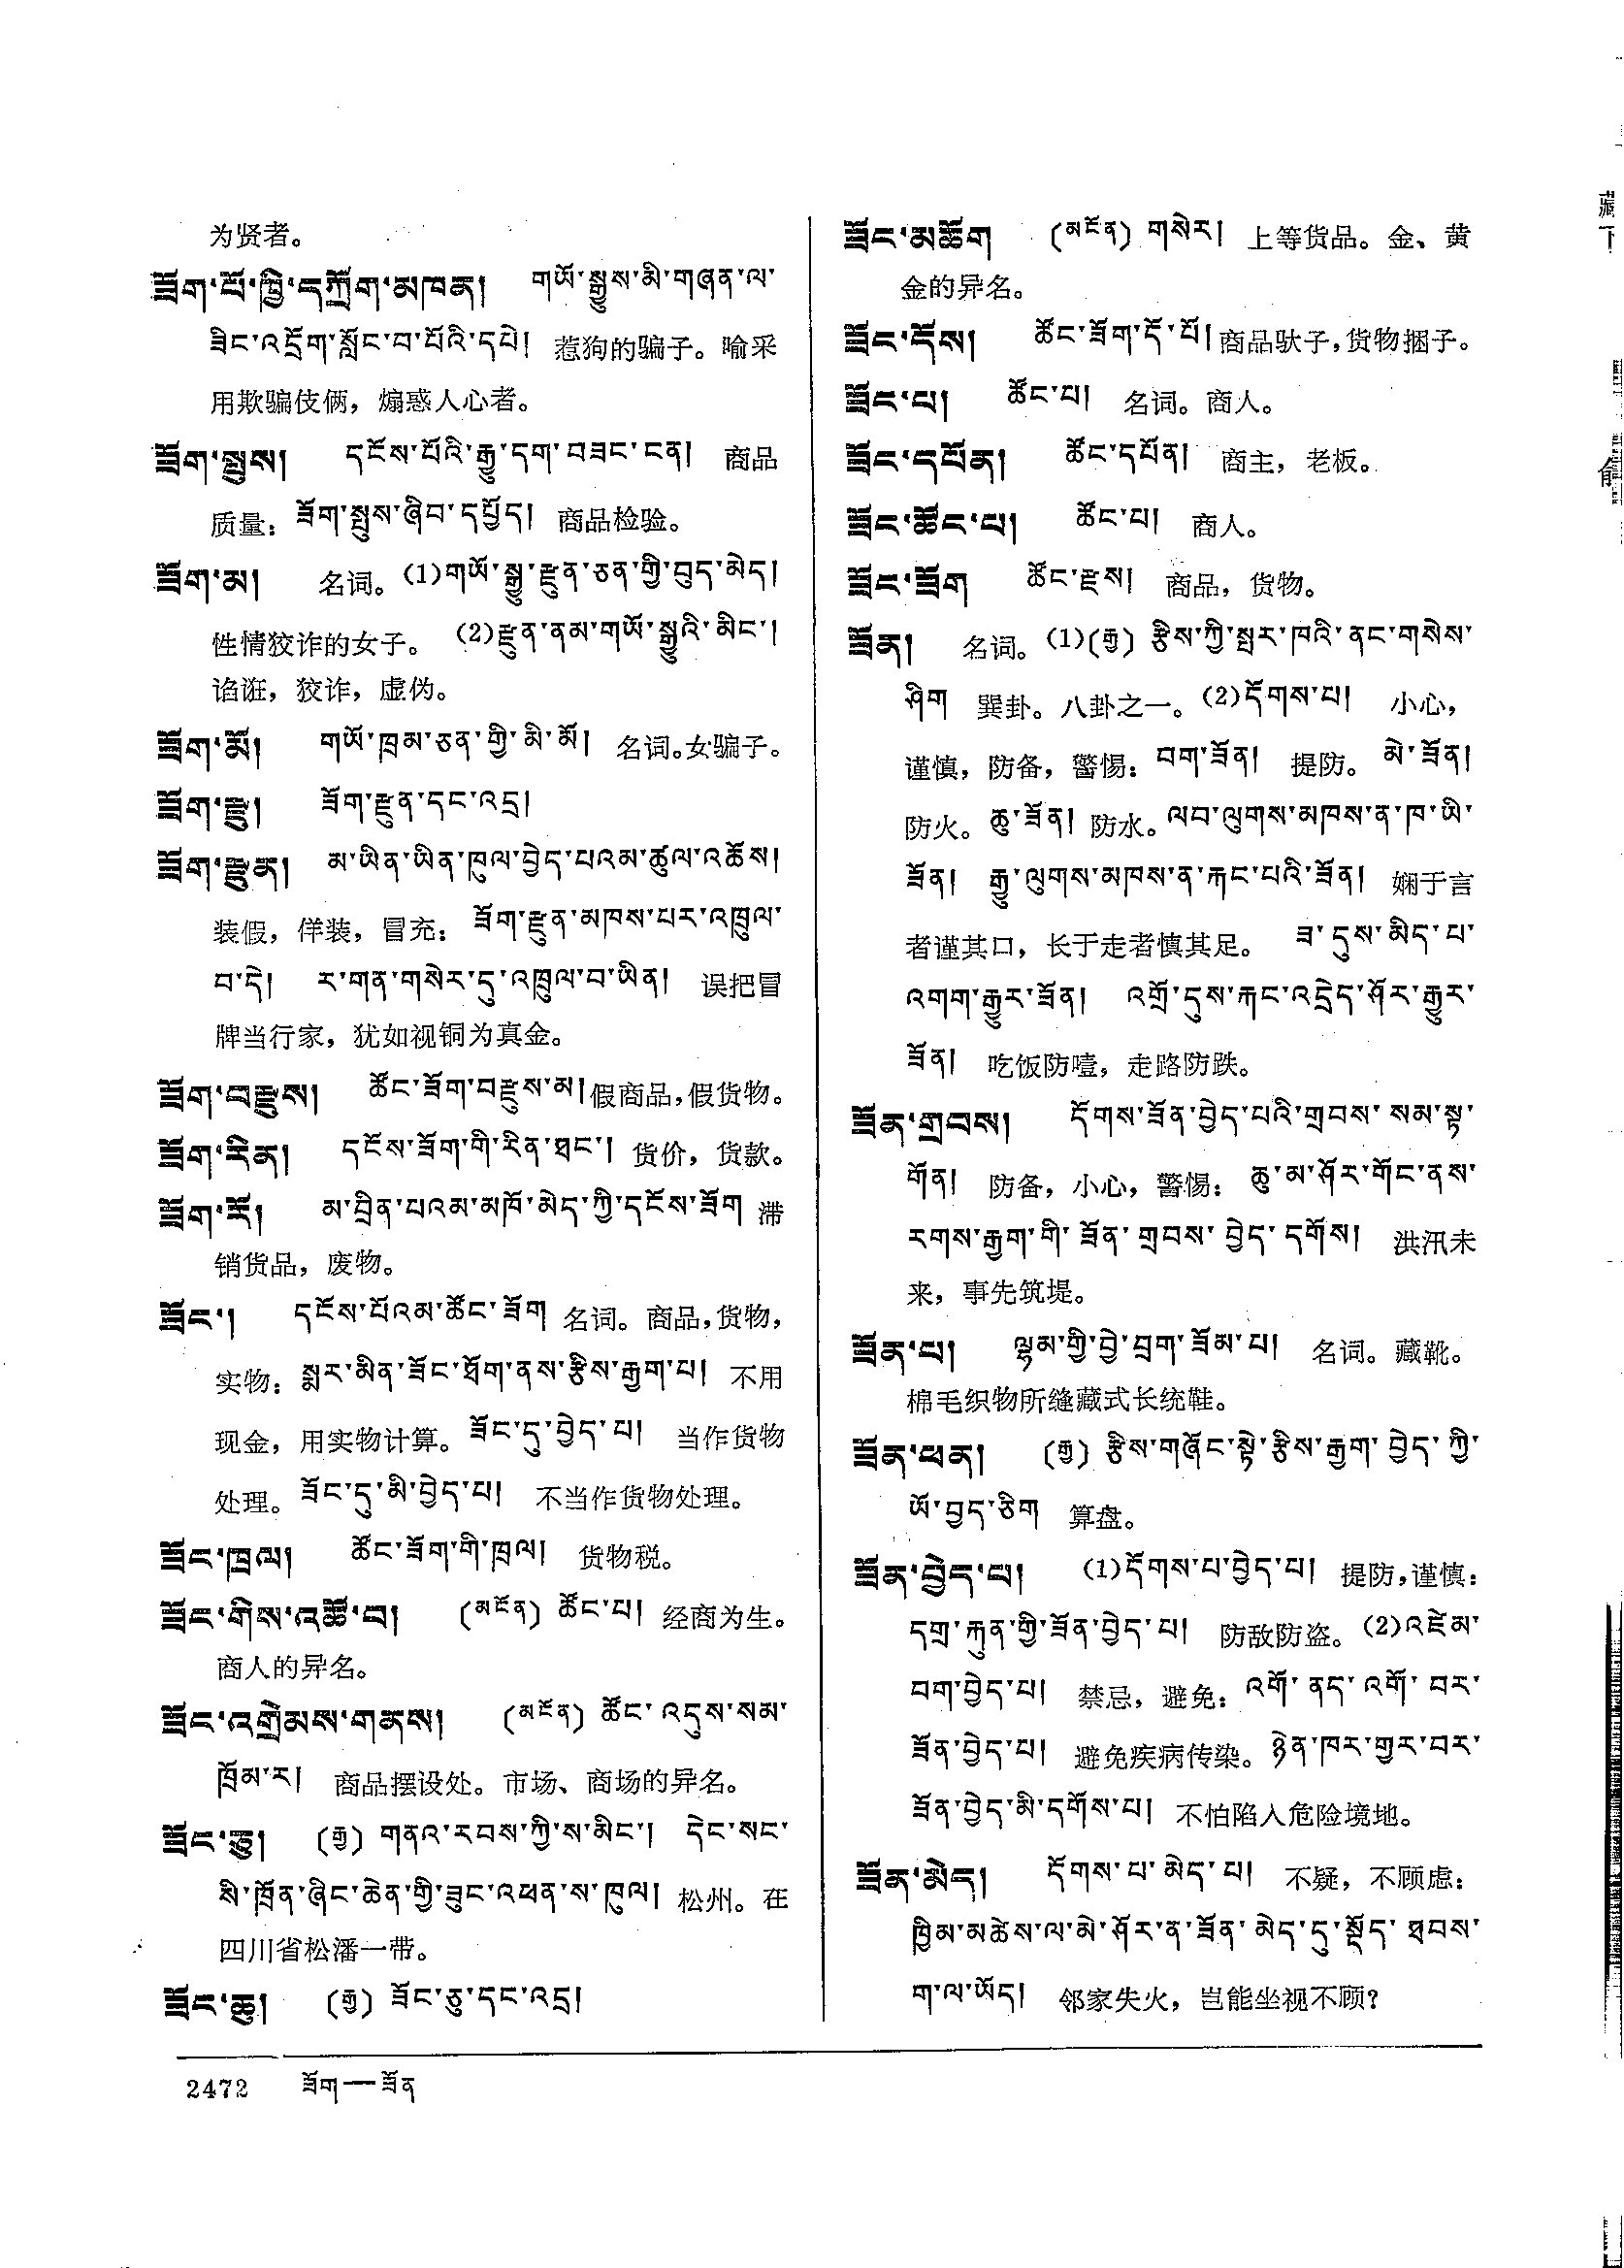 为贤者。
ཟོག་པོ་ཁྱི་དཀྲོག་མཁན། གཡོ་སྒྱུས་མི་གཞན་ལ་
ཟིང་འདྲོག་སློང་བ་པོའི་དཔེ། 惹狗的骗子。喻采
用欺骗伎俩，煽惑人心者。
ཟོག་སྤུས། དངོས་པོའི་རྒྱུ་དག་བཟང་ངན། 商品
质量：ཟོག་སྤུས་ཞིབ་དཔྱོད། 商品检验。
ཟོག་མ། 名词。(1)གཡོ་སྒྱུ་རྫུན་ཅན་གྱི་བུད་མེད།
性情狡诈的女子。 (2)རྫུན་ནམ་གཡོ་སྒྱུའི་མིང་།
谄诳，狡诈，虚伪。
ཟོག་མོ། གཡོ་ཁྲམ་ཅན་གྱི་མི་མོ། 名词。女骗子。
ཟོག་རྫུ། ཟོག་རྫུན་དང་འདྲ།
ཟོག་རྫུན། མ་ཡིན་ཡིན་ཁུལ་བྱེད་པའམ་ཚུལ་འཆོས།
装假，佯装，冒充：ཟོག་རྫུན་མཁས་པར་འཁྲུལ་
བ་དེ། ར་གན་གསེར་དུ་འཁྲུལ་བ་ཡིན། 误把冒
牌当行家，犹如视铜为真金。
ཟོག་བརྫུས། ཚོང་ཟོག་བརྫུས་མ། 假商品，假货物。
ཟོག་རིན། དངོས་ཟོག་གི་རིན་ཐང་། 货价，货款。
ཟོག་རོ། མ་བྲིན་པའམ་མཁོ་མེད་ཀྱི་དངོས་ཟོག 滞
销货品，废物。
ཟོང་། དངོས་པོའམ་ཚོང་ཟོག 名词。商品，货物，
实物：སྨར་མིན་ཟོང་ཐོག་ནས་རྩིས་རྒྱག་པ། 不用
现金，用实物计算。ཟོང་དུ་བྱེད་པ། 当作货物
处理。ཟོང་དུ་མི་བྱེད་པ། 不当作货物处理。
ཟོང་ཁྲལ། ཚོང་ཟོག་གི་ཁྲལ། 货物税。
ཟོང་གིས་འཚོ་བ། (མངོན) ཚོང་པ། 经商为生。
商人的异名。
ཟོང་འགྲེམས་གནས། (མངོན) ཚོང་འདུས་སམ་
ཁྲོམ་ར། 商品摆设处。市场、商场的异名。
ཟོང་ཅུ། (རྒྱ) གནའ་རབས་ཀྱི་ས་མིང་། དེང་སང་
སི་ཁྲོན་ཞིང་ཆེན་གྱི་ཟུང་འཕན་ས་ཁུལ། 松州。在
四川省松潘一带。
ཟོང་ཆུ། (རྒྱ) ཟོང་ཅུ་དང་འདྲ།
ཟོང་མཆོག (མངོན) གསེར། 上等货品。金、黄
金的异名。
ཟོང་དོས། ཚོང་ཟོག་དོ་པོ། 商品驮子，货物捆子。
ཟོང་པ། ཚོང་པ། 名词。商人。
ཟོང་དཔོན། ཚོང་དཔོན། 商主，老板。
ཟོང་ཚོང་པ། ཚོང་པ། 商人。
ཟོང་ཟོག ཚོང་རྫས། 商品，货物。
ཟོན། 名词。(1)(རྒྱ) རྩིས་ཀྱི་སྤར་ཁའི་ནང་གསེས་
ཤིག 巽卦。八卦之一。(2)དོགས་པ། 小心，
谨慎，防备，警惕：བག་ཟོན། 提防。 མེ་ཟོན།
防火。ཆུ་ཟོན། 防水。ལབ་ལུགས་མཁས་ན་ཁ་ཡི་
ཟོན། རྒྱུ་ལུགས་མཁས་ན་རྐང་པའི་ཟོན། 娴于言
者谨其口，长于走者慎其足。 ཟ་དུས་མིད་པ་
འགག་རྒྱུར་ཟོན། འགྲོ་དུས་རྐང་འདྲེད་ཤོར་རྒྱུར་
ཟོན། 吃饭防噎，走路防跌。
ཟོན་གྲབས། དོགས་ཟོན་བྱེད་པའི་གྲབས་སམ་སྟ་
གོན། 防备，小心，警惕：ཆུ་མ་ཤོར་གོང་ནས་
རགས་རྒྱག་གི་ཟོན་གྲབས་བྱེད་དགོས། 洪汛未
来，事先筑堤。
ཟོན་པ། ལྷམ་གྱི་བྱེ་བྲག་ཟོམ་པ། 名词。藏靴。
棉毛织物所缝藏式长统鞋。
ཟོན་ཕན། (རྒྱ) རྩིས་གཞོང་སྟེ་རྩིས་རྒྱག་བྱེད་ཀྱི་
ཡོ་བྱད་ཅིག 算盘。
ཟོན་བྱེད་པ། (1)དོགས་པ་བྱེད་པ། 提防，谨慎：
དགྲ་རྐུན་གྱི་ཟོན་བྱེད་པ། 防敌防盗。(2)འཛེམ་
བག་བྱེད་པ། 禁忌，避免：འགོ་ནད་འགོ་བར་
ཟོན་བྱེད་པ། 避免疾病传染。ཉེན་ཁར་གྱུར་བར་
ཟོན་བྱེད་མི་དགོས་པ། 不怕陷入危险境地。
ཟོན་མེད། དོགས་པ་མེད་པ། 不疑，不顾虑：
ཁྱིམ་མཚེས་ལ་མེ་ཤོར་ན་ཟོན་མེད་དུ་སྡོད་ཐབས་
ག་ལ་ཡོད། 邻家失火，岂能坐视不顾？
2472 ཟོག—ཟོན